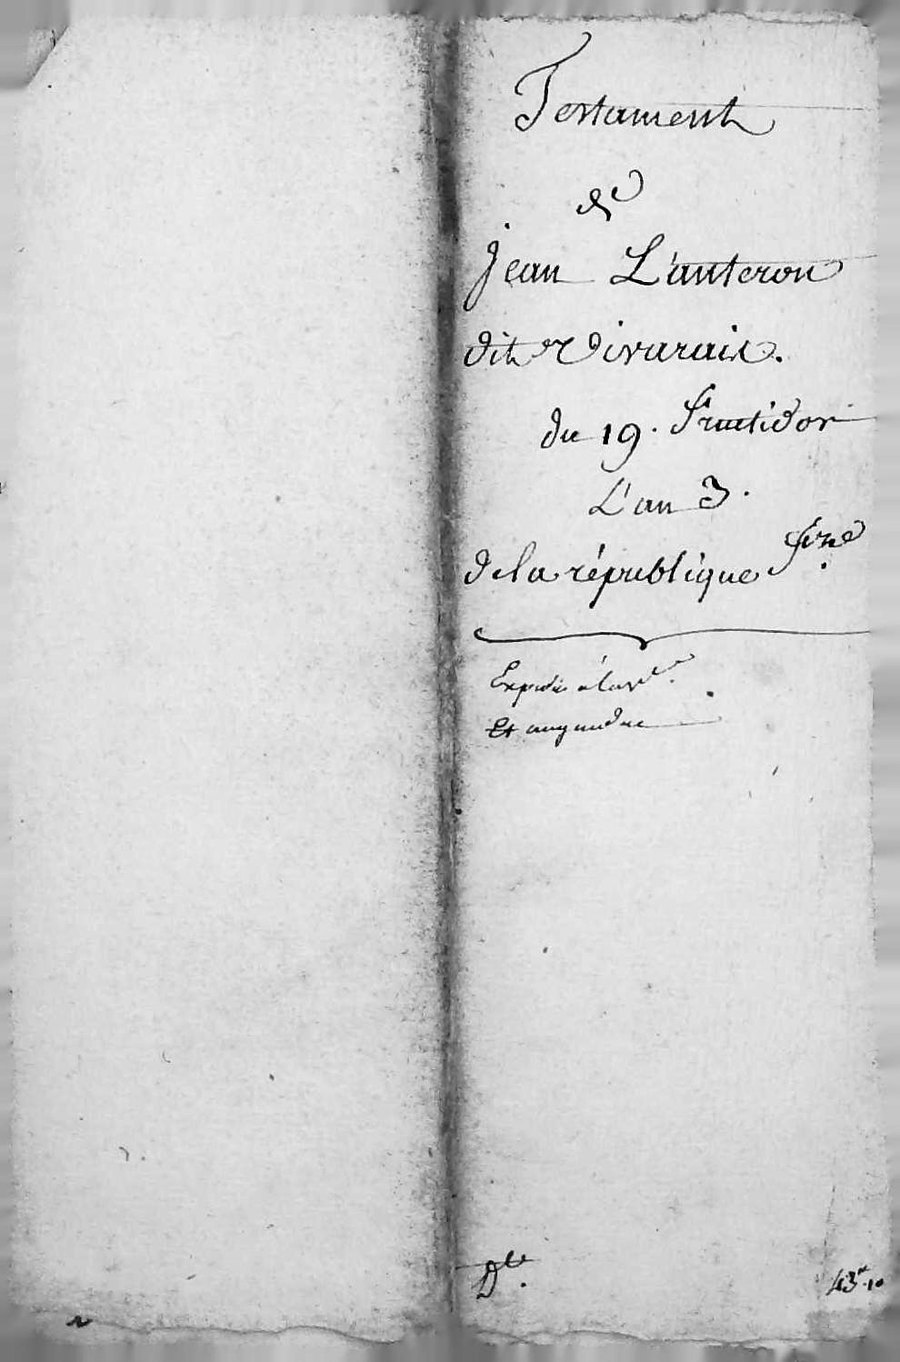 Testament
de
jean L'anteron
dit Vivarais.
du 19. fructidor
L'an 3.
de la république fse
Expédié à la ve.
Et
Dle.
43 10